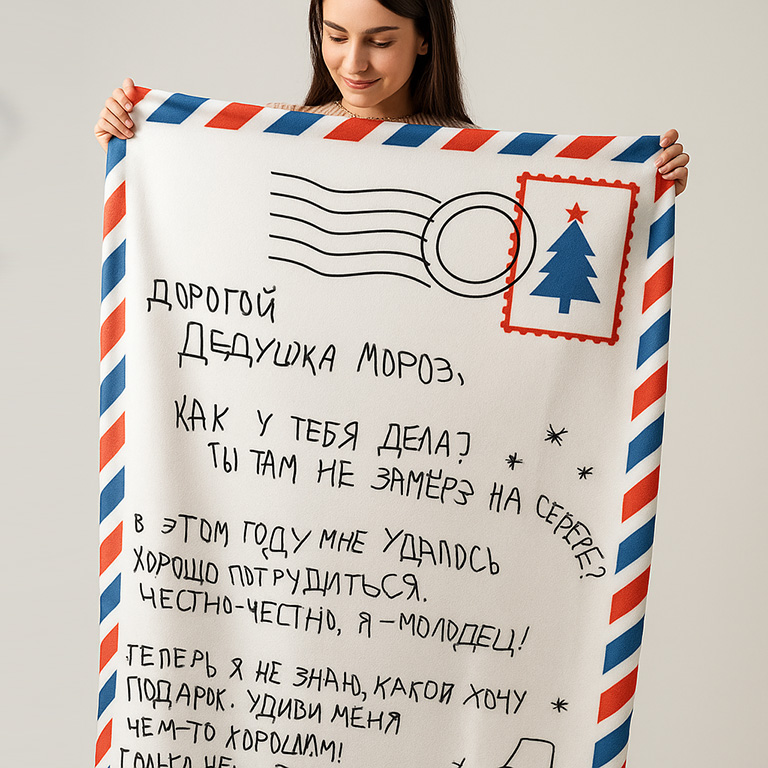 ДОРОГОЙ
ДЕДУШКА МОРОЗ,
КАК У ТЕБЯ ДЕЛА?
ТЫ ТАМ НЕ ЗАМЁРЗ НА СЕВЕРЕ?
В ЭТОМ ГОДУ МНЕ УДАЛОСЬ
ХОРОШО ПОТРУДИТЬСЯ.
ЧЕСТНО-ЧЕСТНО, Я – МОЛОДЕЦ!
ТЕПЕРЬ Я НЕ ЗНАЮ, КАКОЙ ХОЧУ
ПОДАРОК. УДИВИ МЕНЯ
ЧЕМ-ТО ХОРОШИМ!
ТОЛЬКО